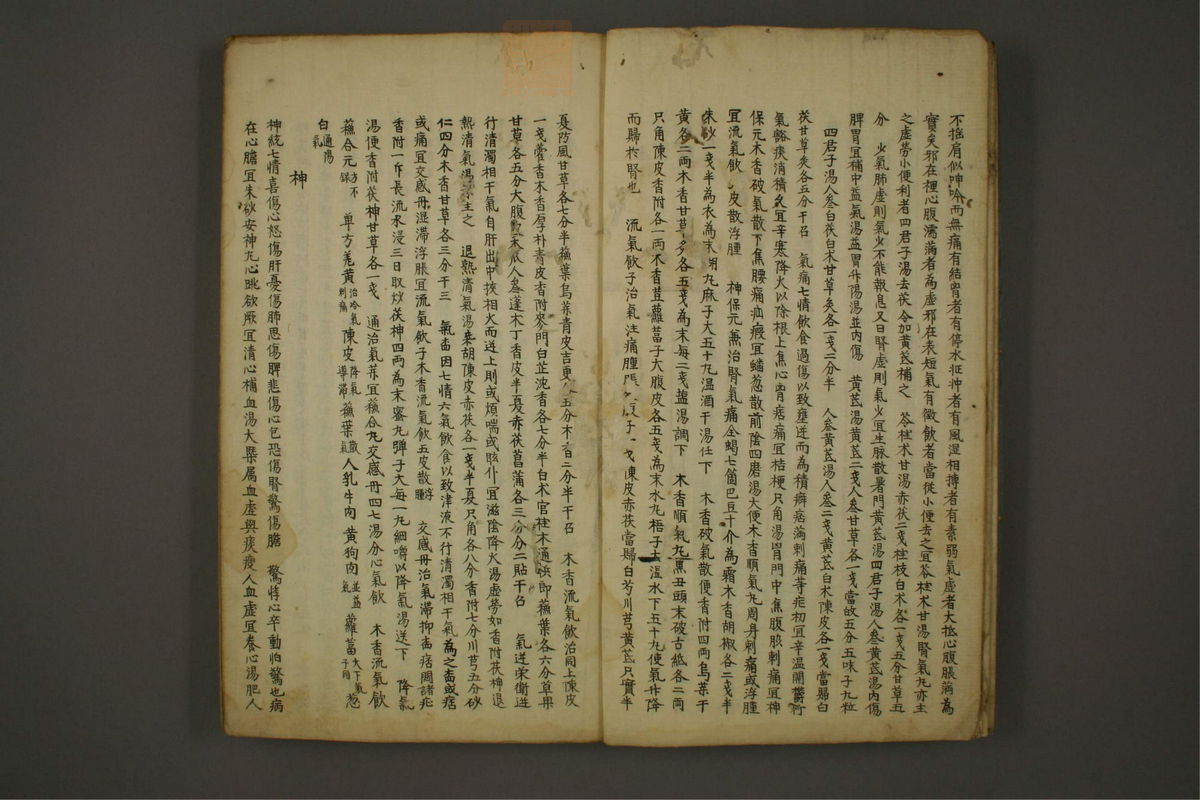 不擡肩似呻吟而無痛有結胷者有停水怔忡者有風湿相搏者有素弱氣虛者大抵心腹脹滿為
實矣邪在裡心腹濡滿者為虛邪在表短氣有微飲者當從小便去之宜苓桂朮甘湯腎氣丸亦主
之虛勞小便利者四君子湯去茯苓加黃芪補之 苓桂朮甘湯赤茯二戔桂枝白朮各一戔五分甘草五
分 少氣肺虛則氣少不能報息又曰腎虛則氣少宜生脉散暑門黃芪湯四君子湯人參黃芪湯内傷
脾胃宜補中益氣湯益胃升陽湯並内傷 黃芪湯黃芪二戔人參甘草各一戔當歸五分五味子九粒
四君子湯人參白茯白朮甘草灸各一戔二分半 人參黃芪湯人參二戔黃芪白朮陳皮各一戔當歸白
茯甘草灸各五分干召 氣痛七情飲食過傷以致壅迸而為積癖痞滿刺痛等疟初宜辛温開欝行
氣豁痰消積久宜辛寒降火以除根上焦心胷痞痛宜桔梗只角湯胃門中焦腹脇刺痛宜神
保元木香破氣散下焦腰痛疝瘕宜蟠葱散前陰四磨湯大便木香順氣丸周身刺痛或浮腫
宜流氣飲 皮散浮腫 神保元兼治腎氣痛全蝎七箇巴豆十介為霜木香胡椒各二戔半
朱砂一戔半為衣為末 丸麻子大五十九温酒干湯任下 木香破氣散便香附四兩烏藥干
黃各二兩木香甘草 各五戔為末每二戔塩湯調下 木香順氣丸黑丑頭末破古紙各二兩
只角陳皮香附各一兩木香荳蔻葍子大腹皮各五戔為末水丸梧子大溫水下五十九使氣升降
而歸於腎也 流氣飲子治氣注痛腫脹 子 陳皮赤茯當歸白芍川芎黃芪只實半
夏防風甘草各七分半蘓葉烏藥青皮吉更 五分木香二分半干召 木香流氣飲治同上陳皮
一戔藿香木香厚朴青皮香附麥門白芷沈香各七分半白朮官桂木通 即蘓葉各六分草果
甘草各五分大腹 木瓜人參蓬朮丁香皮半夏赤茯菖蒲各三分分二貼干召 氣逆荣衛迸
行清濁相干氣自肝出中挾相火而迸上則或煩喘或咳仆宜滋陰降火湯虛勞如香附茯神退
熱清氣湯 主之 退熱清氣湯柴胡陳皮赤茯各一戔半夏只角各八分香附七分川芎五分砂
仁四分木香甘草各三分干三 氣 因七情六氣飲食以致津液不行清濁相干氣為之 或痞
或痛宜交感丹湿滞浮脹宜流氣飲子木香流氣飲五皮散浮腫 交感丹治氣滞抑 痞悶諸疟
香附一斤長流水浸三日取炒茯神四兩為末蜜丸彈子大每一丸細嚼以降氣湯送下 降氣
湯便香附茯神甘草各一戔 通治氣 宜蘓合丸交感丹四七湯分心氣飲 木香流氣飲
蘓合元方不錄 单方羌黃治冷氣刺痛陳皮降氣導滞蘓葉散氣人乳牛肉 黃狗肉並益氣 蘿葍大下氣子同葱
白通陽氣
神
神統七情喜傷心怒傷肝憂傷肺思傷脾悲傷心包恐傷腎驚傷膽 驚悸心卒動怕驚也病
在心膽宜朱砂安神丸心跳欲厥宜清心補血湯大槩属血虛與痰瘦人血虛宜養心湯肥人